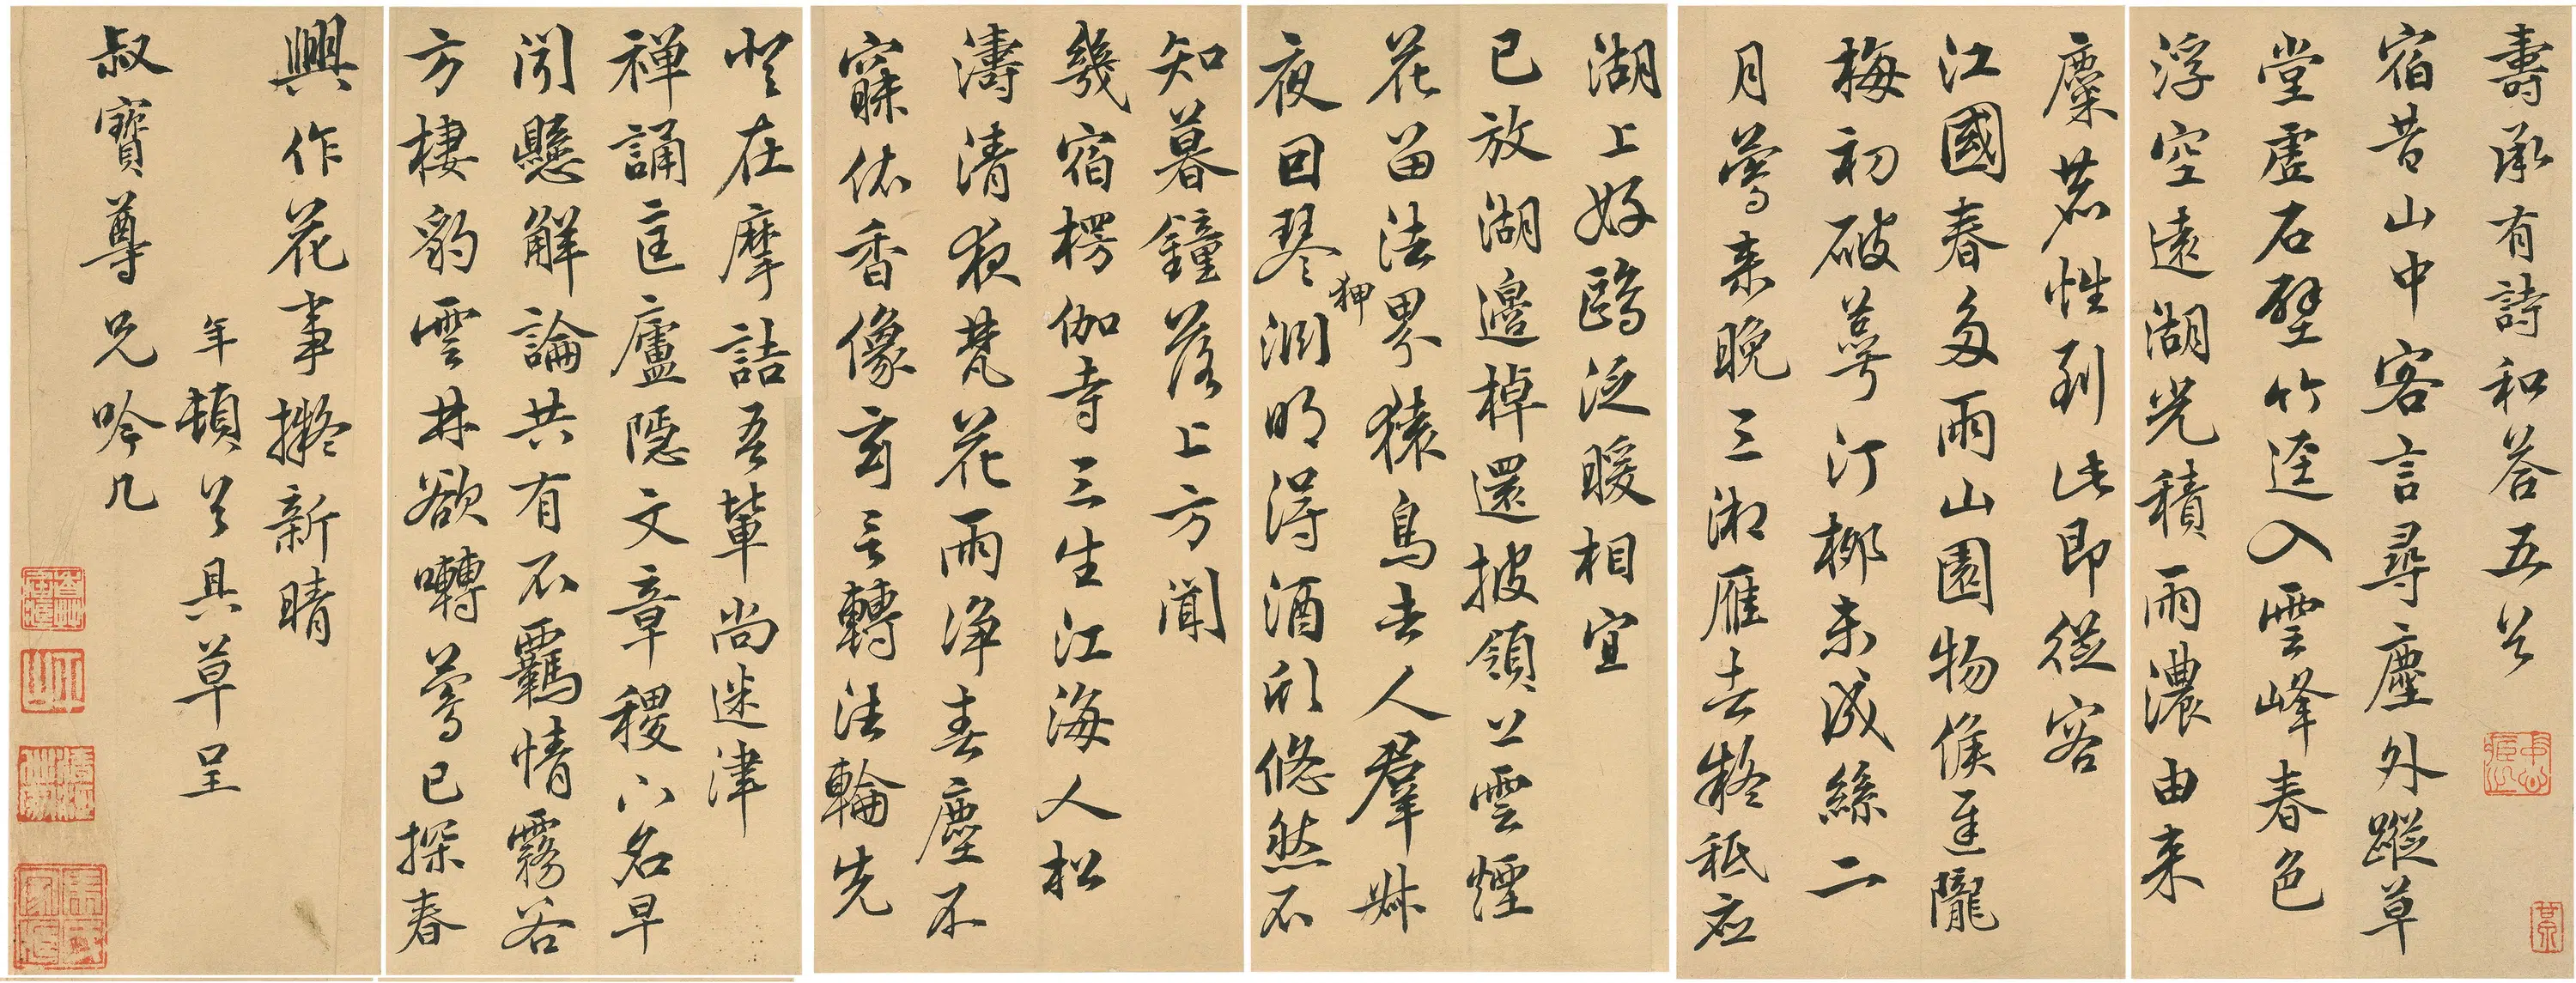 壽承有詩和答五首
宿昔山中客言尋塵外蹤草
堂虛石壁竹逕入雲峰春色
浮空遠湖光積雨濃由来
麋鹿性到此即從容
江國春多雨山園物候遲隴
梅初破萼汀柳未成絲二
月鶯来晚三湘雁去疑秪应
湖上好鷗泛暖相宜
已放湖邊棹還披嶺上雲煙
花留法界猿鳥去人羣叔
夜回琴狎淵明得酒欣悠然不
知暮鐘落上方聞
幾宿楞伽寺三生江海人松
濤清夜梵花雨淨春塵不
寐依香像玄言轉法輪先
登在摩詰吾輩尚迷津
禅誦匡廬隱文章稷下名早
聞懸解論共有不羈情霧谷
方棲豹雲林欲囀鶯已探春
興作花事擬新晴
年頓首具草呈
叔寶尊兄吟几